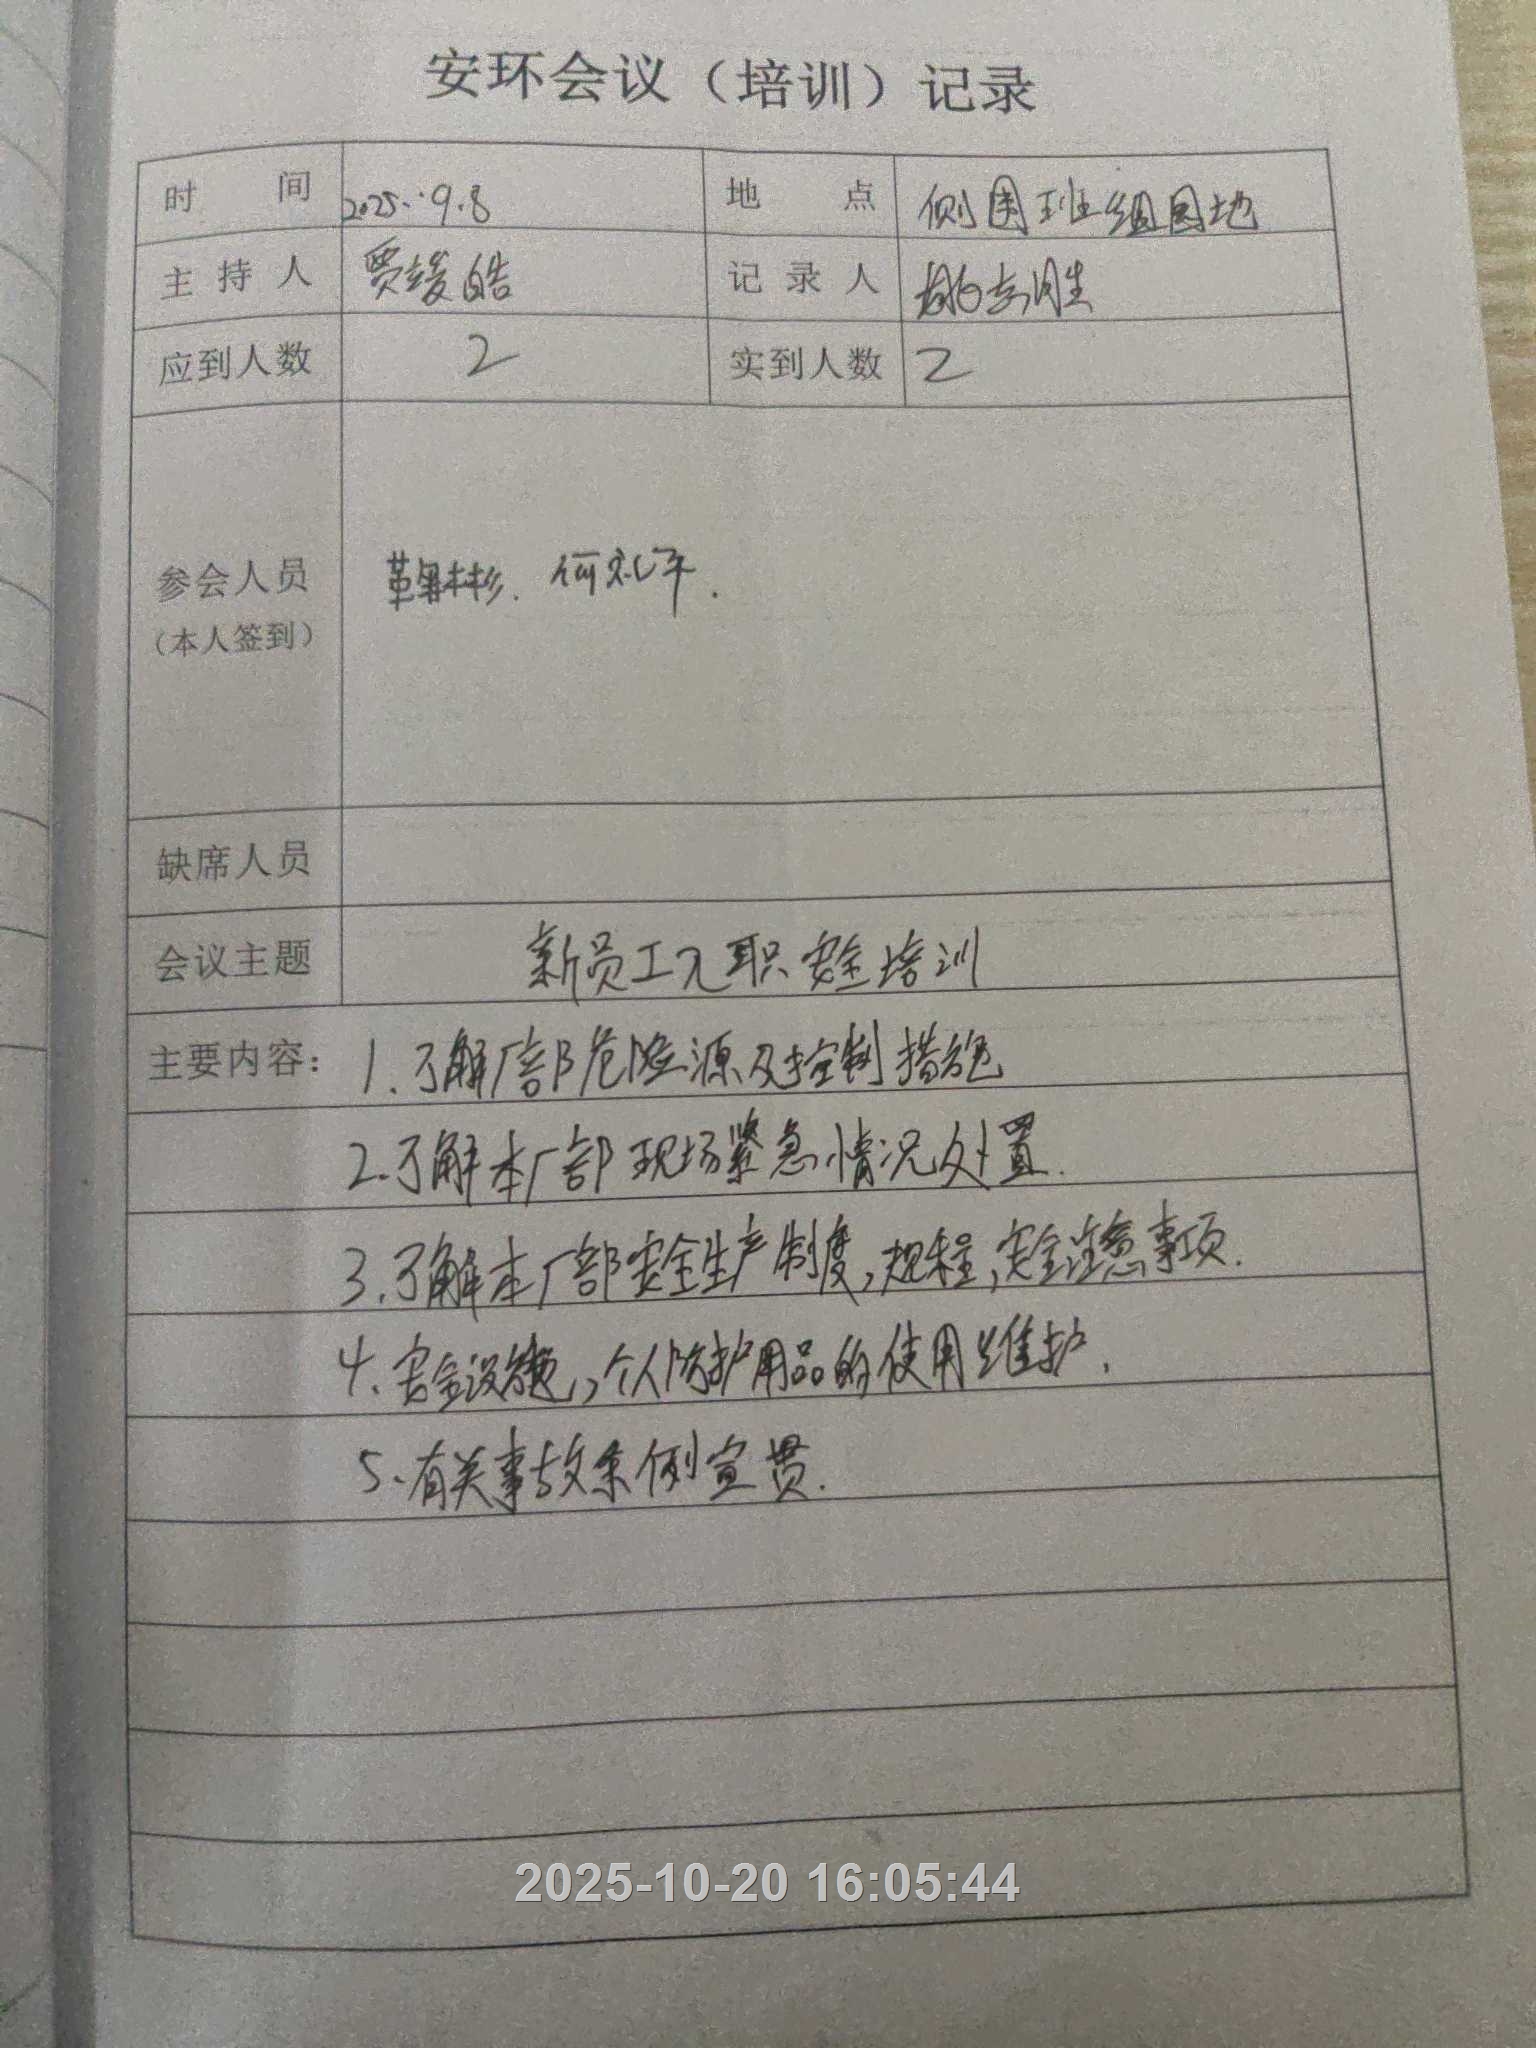 安环会议（培训）记录
时 间 2025.9.8 地 点 侧围班组园地
主 持 人 贾 皓 记 录 人 姚志胜
应到人数 2 实到人数 2
参会人员
（本人签到）
缺席人员
会议主题 新员工入职安全培训
主要内容： 1.了解厂部危险源及控制措施
2.了解本厂部现场紧急情况处置.
3.了解本厂部安全生产制度,规程,安全注意事项.
4.安全设施,个人防护用品的使用维护.
5.有关事故案例宣贯.
2025-10-20 16:05:44